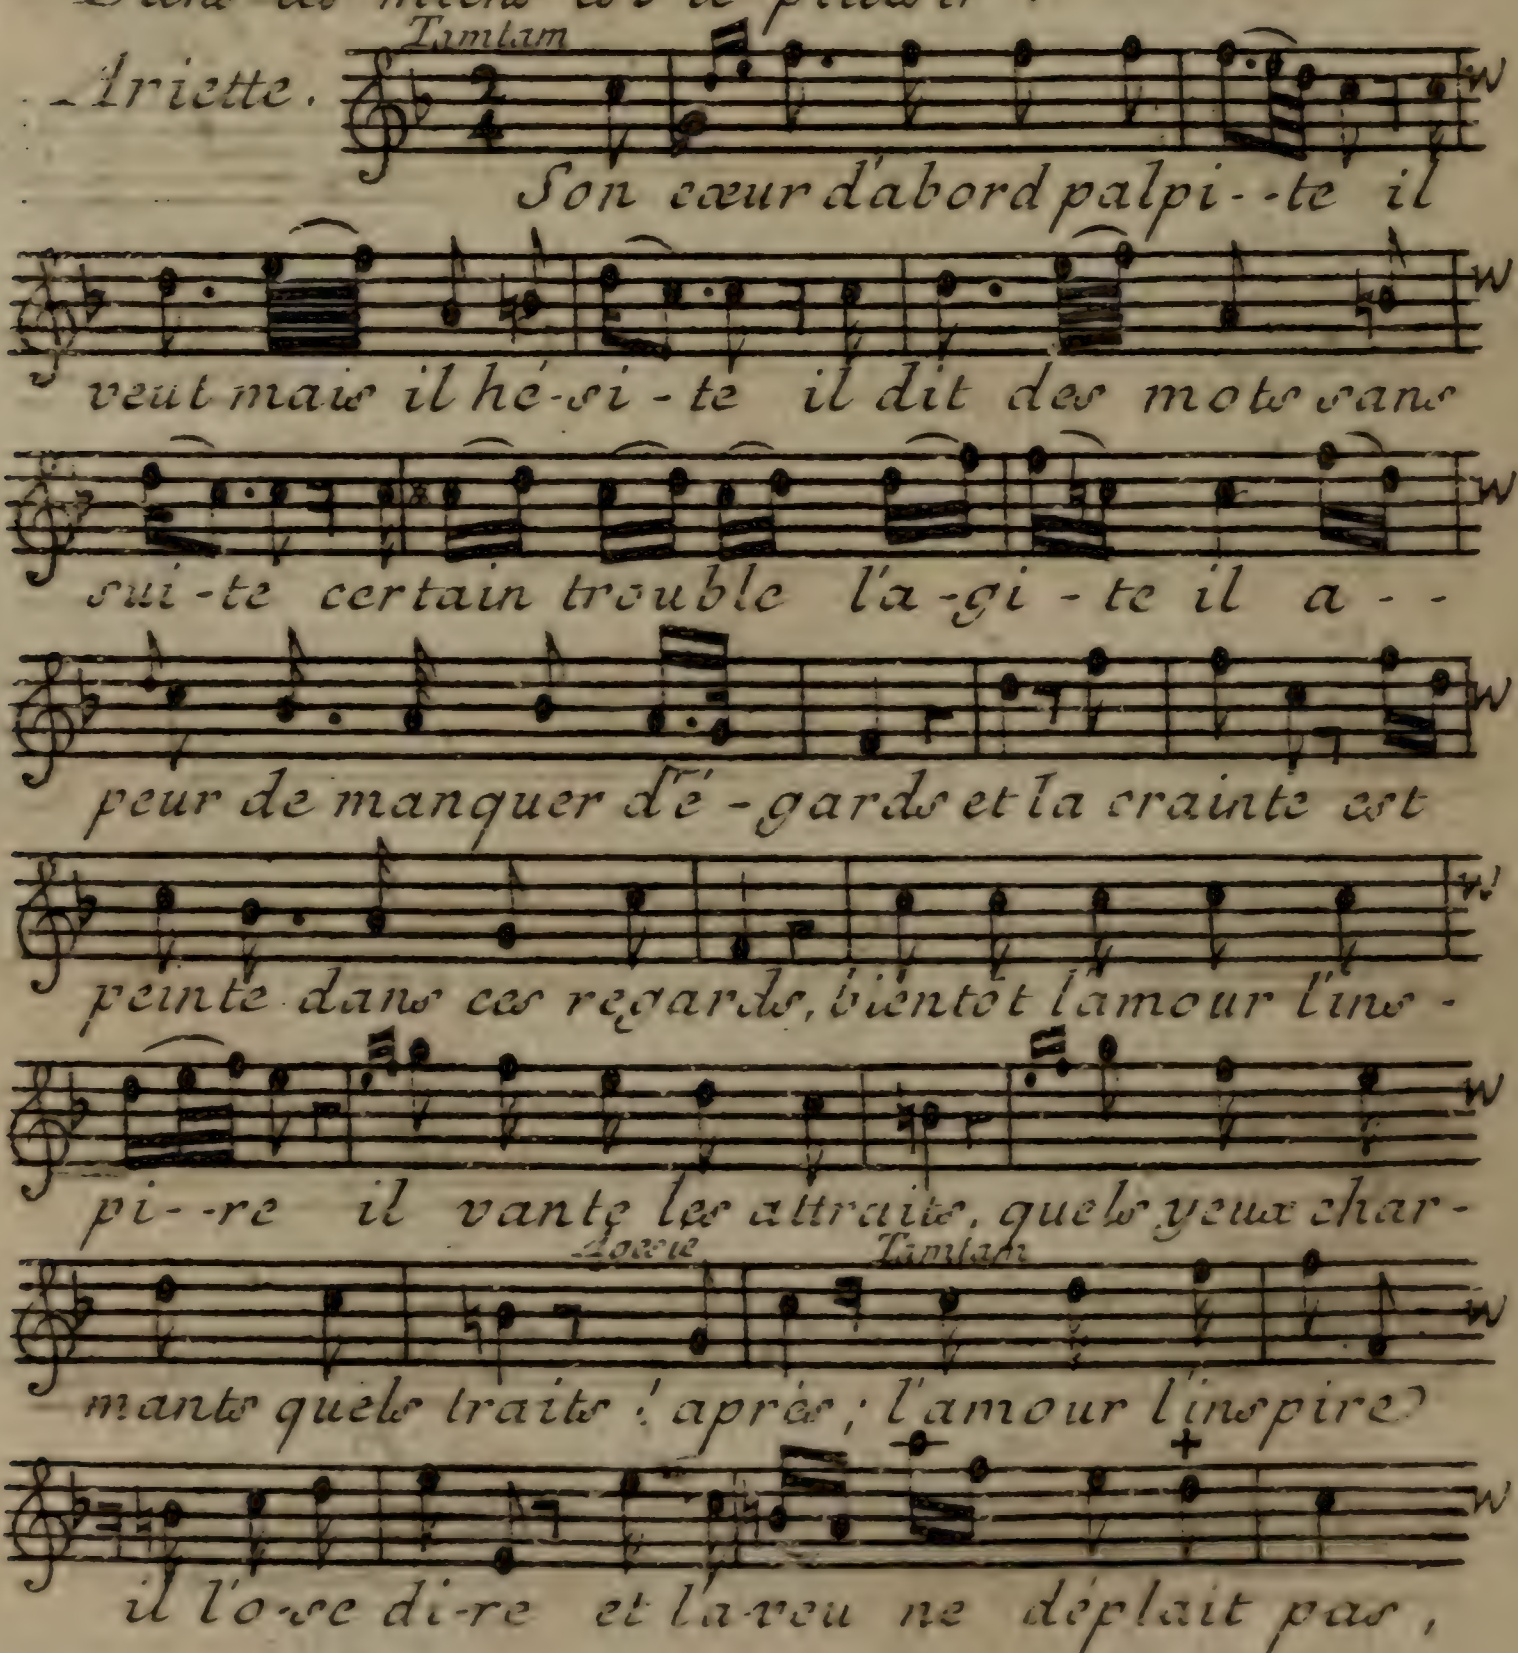 Tamtam
Ariette.
2
4
Son cœur d'abord palpi--te il
veut mais il hé-si-te il dit des mots sans
sui-te certain trouble l'a-gi-te il a--
peur de manquer d'é-gards et la crainte est
peinte dans ces regards, bientôt l'amour l'ins-
pi--re il vante les attraits, quels yeux char-
Tamtam
mants quels traits! après; l'amour l'inspire
il l'o-se di-re et l'a-veu ne déplait pas,